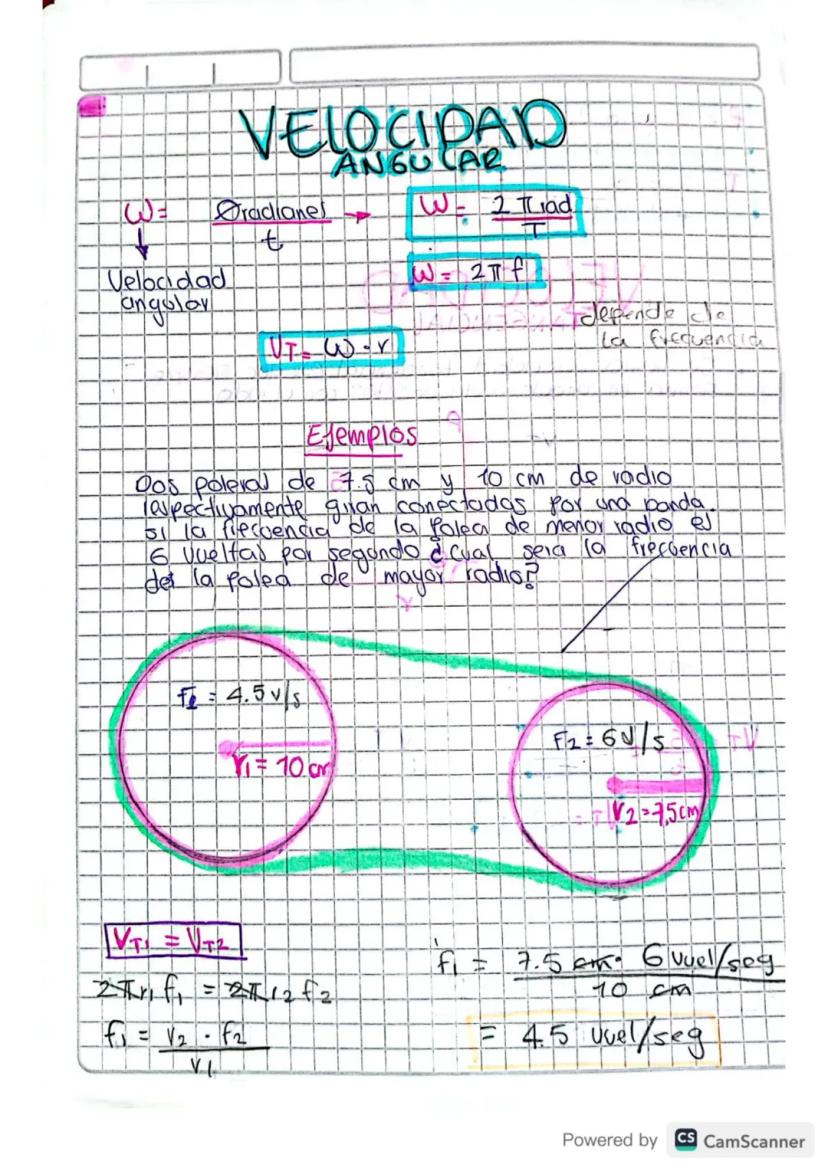 VELOCIDAD
ANGULAR
ω = Øradianes → ω = 2πrad
t T
Velocidad
angular
ω = 2πf
depende de
la frecuencia
VT = ω · r
Ejemplos
Dos poleras de 7.5 cm y 10 cm de radio
respectivamente giran conectadas por una banda.
si la frecuencia de la polea de menor radio es
6 vueltas por segundo ¿cual sera la frecuencia
de la polea de mayor radio?
f1 = 4.5 v/s
r1 = 10 cm
F2 = 6 V/s
r2 = 7.5 cm
VT1 = VT2
2πr1 f1 = 2πr2 f2
f1 = r2 · f2
r1
f1 = 7.5 cm · 6 vuel/seg
10 cm
= 4.5 vuel/seg
Powered by CS CamScanner